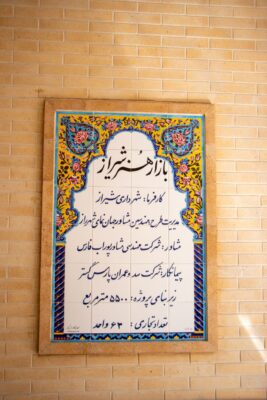 بازار هنر شیراز
کارفرما: شهرداری شیراز
مدیریت طرح: مهندسین مشاور جهان نمای شهر راز
مشاور: شرکت مهندسی مشاور پوراب فارس
پیمانکار: شرکت سد و عمران پارس گستر
زیر بنای پروژه: ۵۵۰۰ مترمربع
تعداد تجاری: ۶۳ واحد